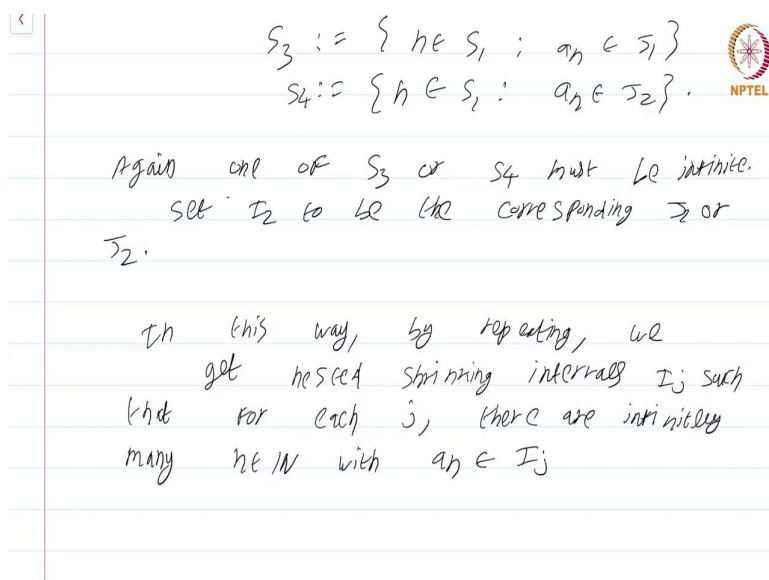 S₃ := { n ∈ S₁ : aₙ ∈ J₁ }
S₄ := { n ∈ S₁ : aₙ ∈ J₂ }.
NPTEL
Again one of S₃ or S₄ must be infinite.
Set I₂ to be the corresponding or
J₂.
In this way, by repeating, we
get nested shrinking intervals Iⱼ such
that for each j, there are infinitely
many n ∈ ℕ with aₙ ∈ Iⱼ